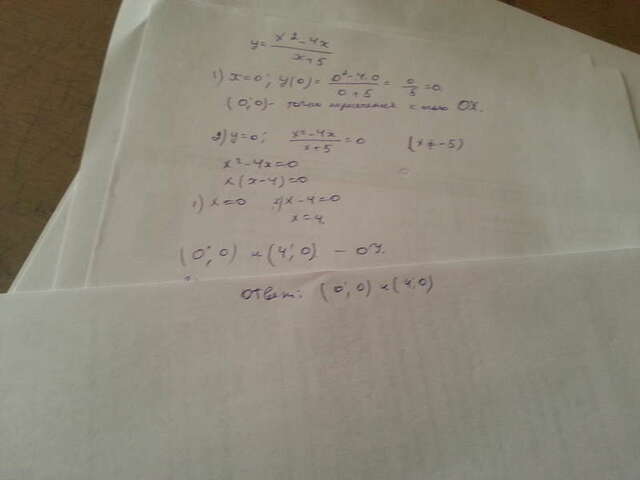 y = (x² - 4x)/(x+5)
1) x=0; y(0) = (0² - 4·0)/(0+5) = 0/5 = 0
(0; 0) - точка пересечения с осью OX.
2) y=0; (x² - 4x)/(x+5) = 0 (x ≠ -5)
x² - 4x = 0
x(x-4) = 0
1) x=0 2) x-4=0
x=4
(0; 0) и (4; 0) - OY.
Ответ: (0; 0) и (4; 0)